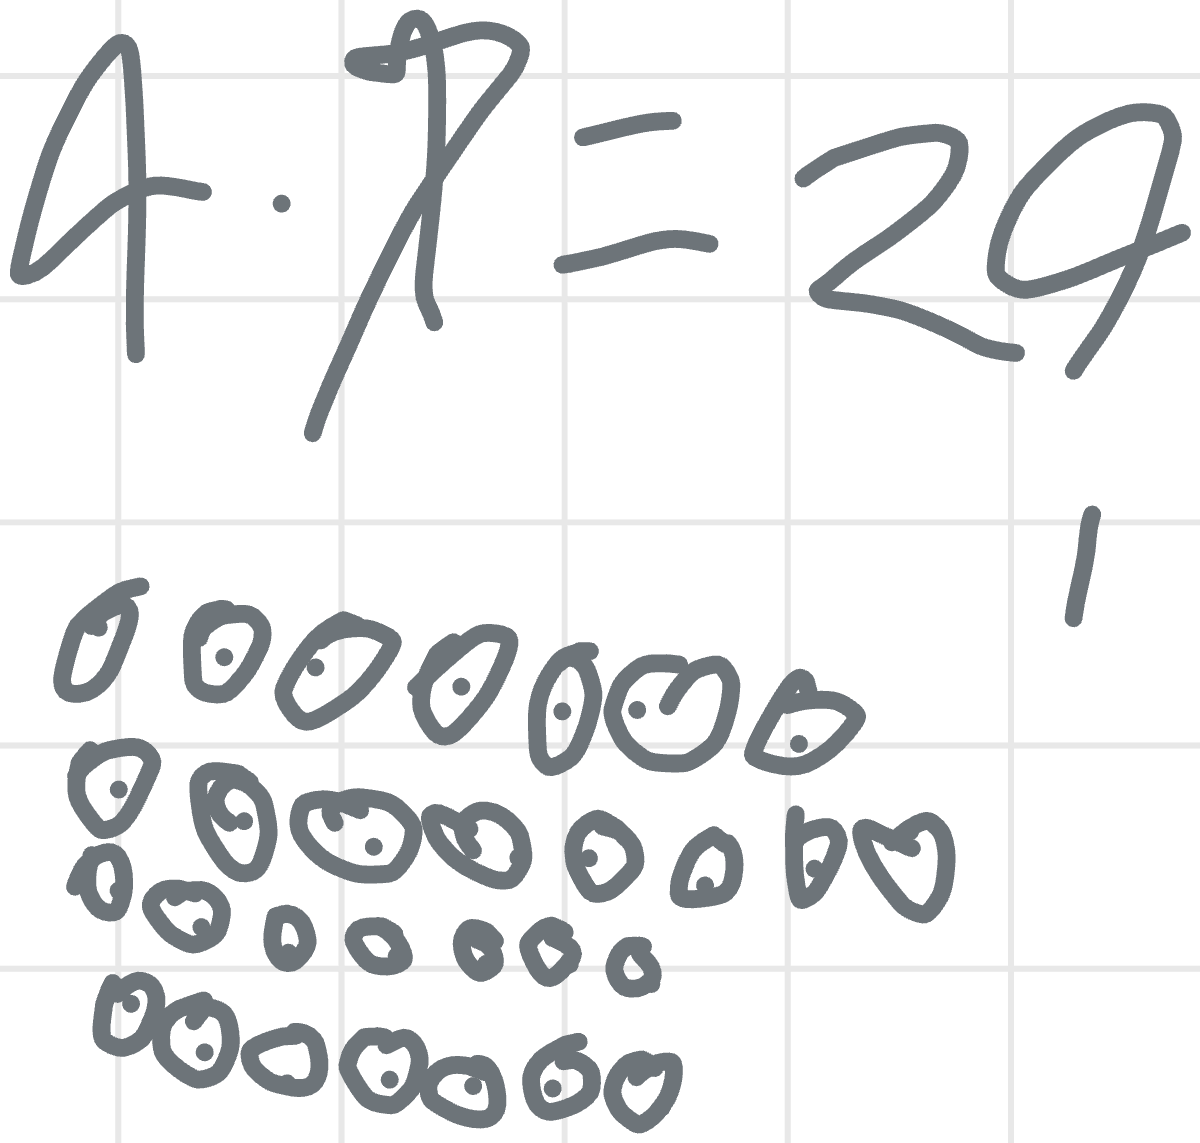 4 · 7 = 29
1